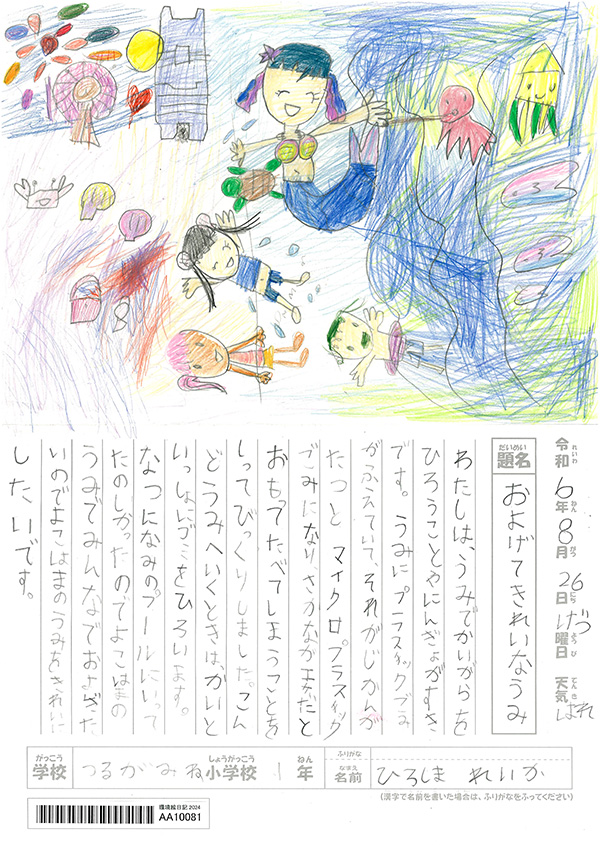 令和6年8月26日げつ曜日 天気はれ
れいわ ねん がつ にち ようび てんき
だいめい
題名
およげてきれいなうみ
わたしは、うみでかいがらを
ひろうことやにんぎょがすき
です。うみにプラスチックごみ
がふえていて、それがじかんが
たつと マイクロプラスチック
ごみになり、さかながまちがえだと
おもってたべてしまうことを
しってびっくりしました。こん
どうみへいくときは、かいと
いっしょにゴミをひろいます。
なつになみのプールにいって
たのしかったのでよこはまの
うみでみんなでおよぎた
いのでよこはまのうみをきれいに
したいです。
がっこう
学校
つるがみね
しょうがっこう
小学校
1
ねん
年
ふりがな
なまえ
名前
ひろしま れいか
(漢字で名前を書いた場合は、ふりがなをふってください)
環境絵日記 2024
AA10081